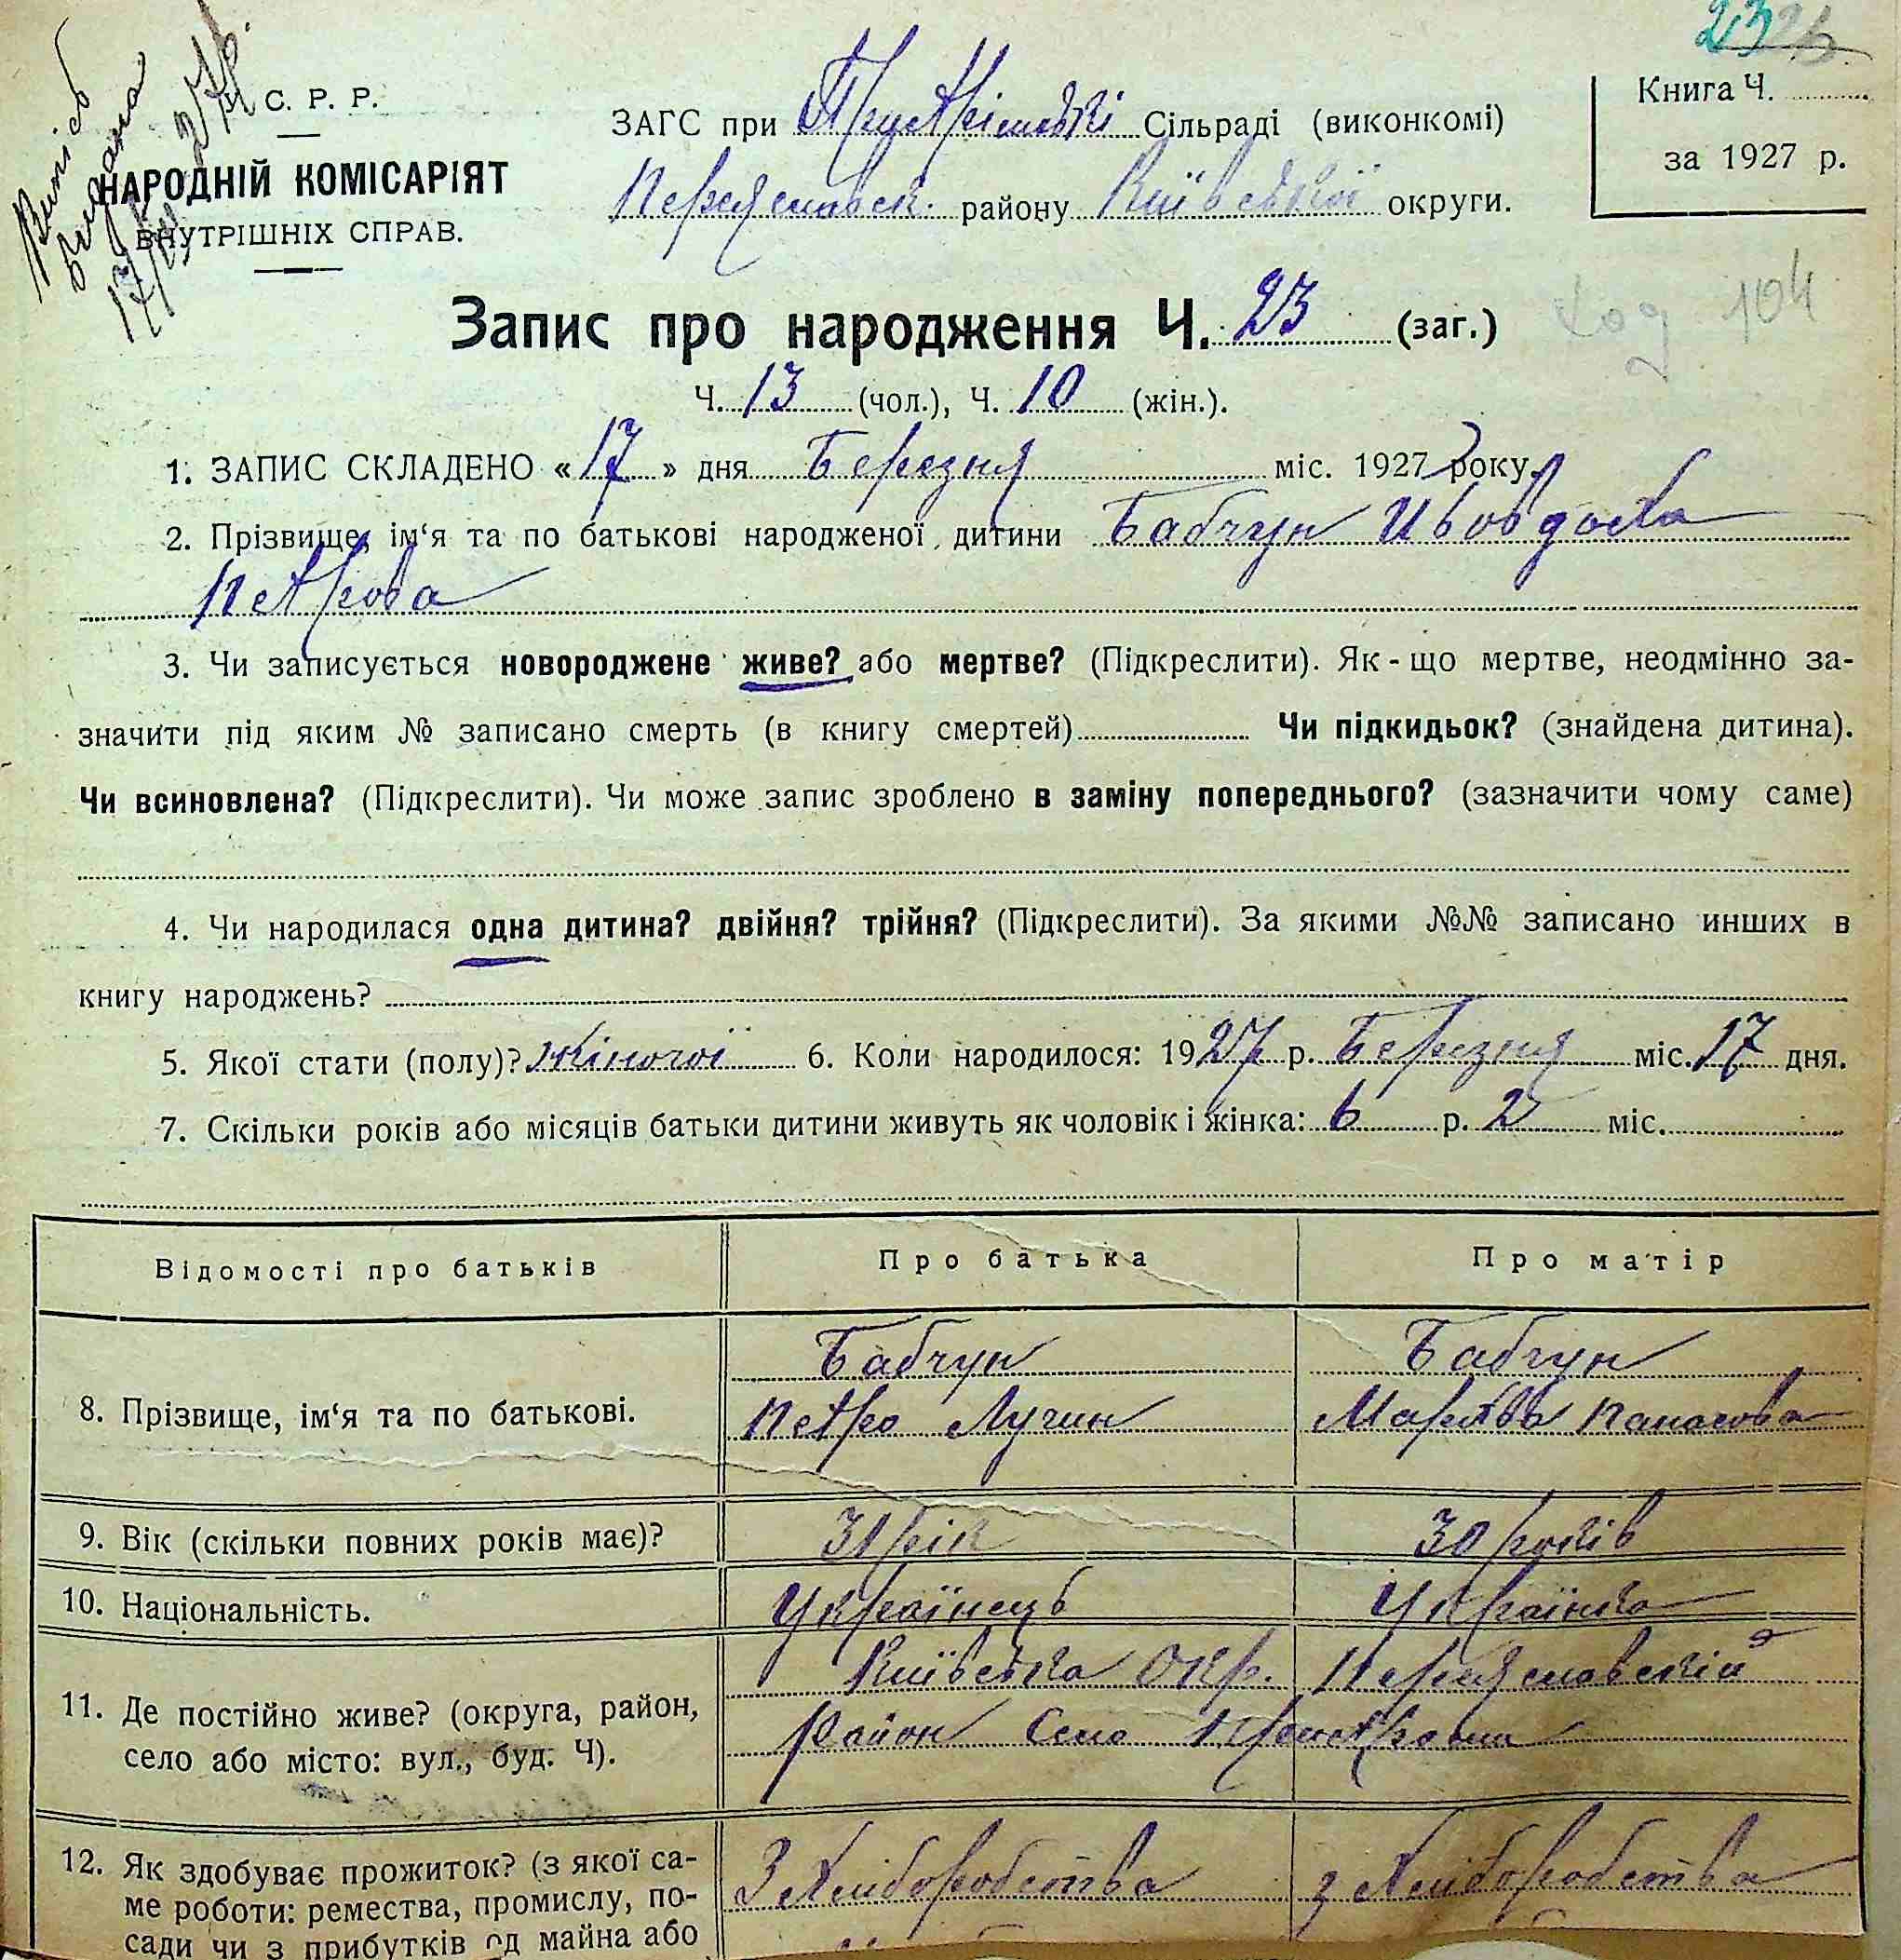 23 23
Випись
видана
17/III 27 р.
У. С. Р. Р.
НАРОДНІЙ КОМІСАРІЯТ
ВНУТРІШНІХ СПРАВ.
ЗАГС при Сільраді (виконкомі)
Переяславськ. району Київської округи.
Книга Ч.
за 1927 р.
Запис про народження Ч. 23 (заг.)
Код 104
Ч. 13 (чол.), Ч. 10 (жін.).
1. ЗАПИС СКЛАДЕНО « 17 » дня Березня міс. 1927 року.
2. Прізвище, ім‘я та по батькові народженої дитини Бабчук Ивовдоха
Петрова
3. Чи записується новороджене живе? або мертве? (Підкреслити). Як-що мертве, неодмінно за-
значити під яким № записано смерть (в книгу смертей) Чи підкидьок? (знайдена дитина).
Чи всиновлена? (Підкреслити). Чи може запис зроблено в заміну попереднього? (зазначити чому саме)
4. Чи народилася одна дитина? двійня? трійня? (Підкреслити). За якими №№ записано инших в
книгу народжень?
5. Якої стати (полу)? жіночої 6. Коли народилося: 1927 р. Березня міс. 17 дня.
7. Скільки років або місяців батьки дитини живуть як чоловік і жінка: 6 р. 2 міс.
Відомості про батьків Про батька Про матір
8. Прізвище, ім‘я та по батькові.
Бабчук
Петро Лучин
Бабчук
Марфа Панасова
9. Вік (скільки повних років має)? 31 рік 30 років
10. Національність. Українець Українка
11. Де постійно живе? (округа, район,
село або місто: вул., буд. Ч).
Київська Окр. Переяславський
район Село
12. Як здобуває прожиток? (з якої са-
ме роботи: ремества, промислу, по-
сади чи з прибутків од майна або
З Хліборобства з Хліборобства